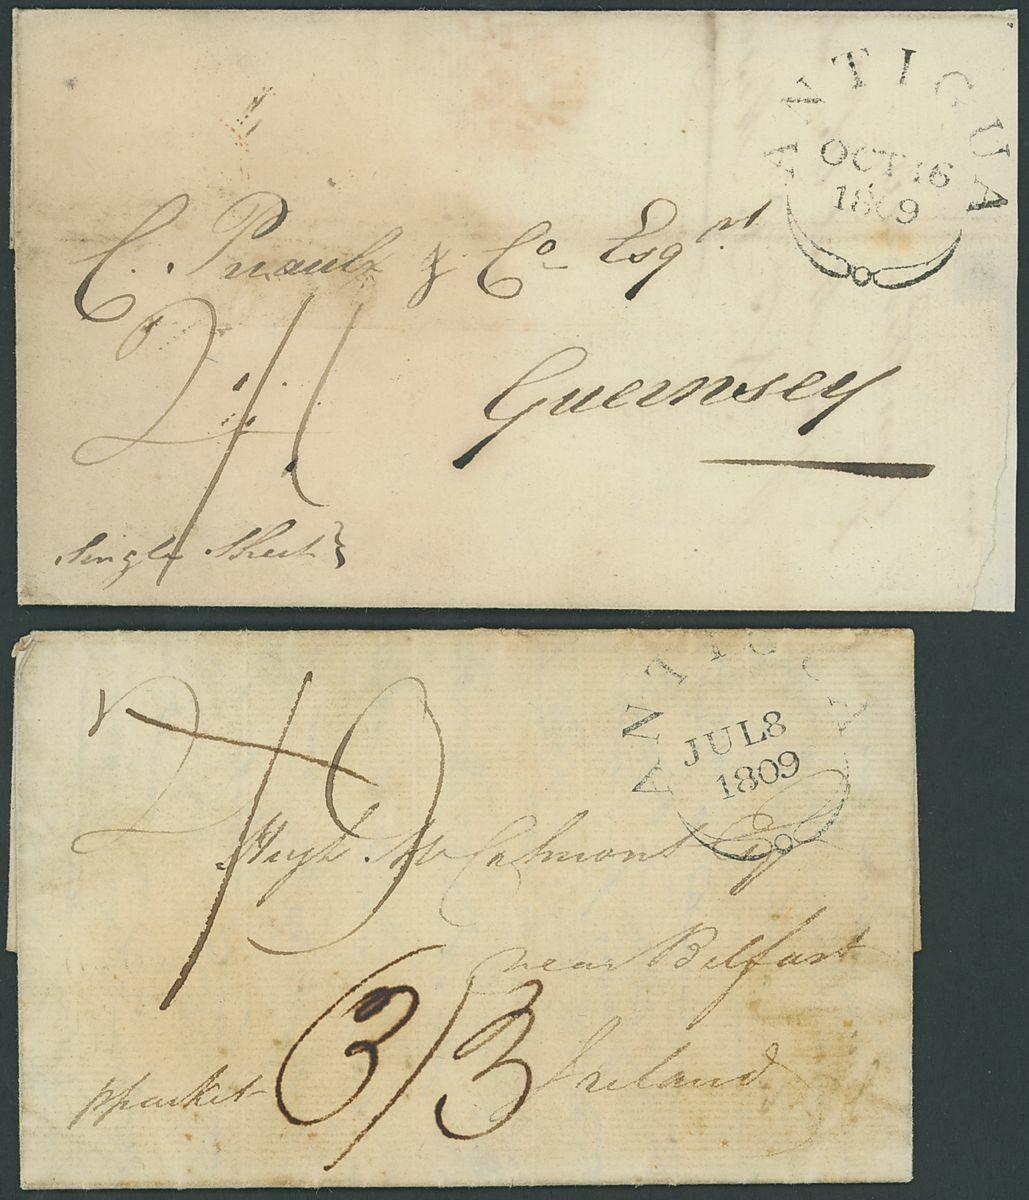 ANTIGUA
OCT 16
1809
C. Priaulx & Co Esqrs
2/1
Guernsey
Single Sheet
ANTIGU
JUL 8
1809
2/2
Hugh McCalmont Esq
near Belfast
3/3
Ireland
p packet